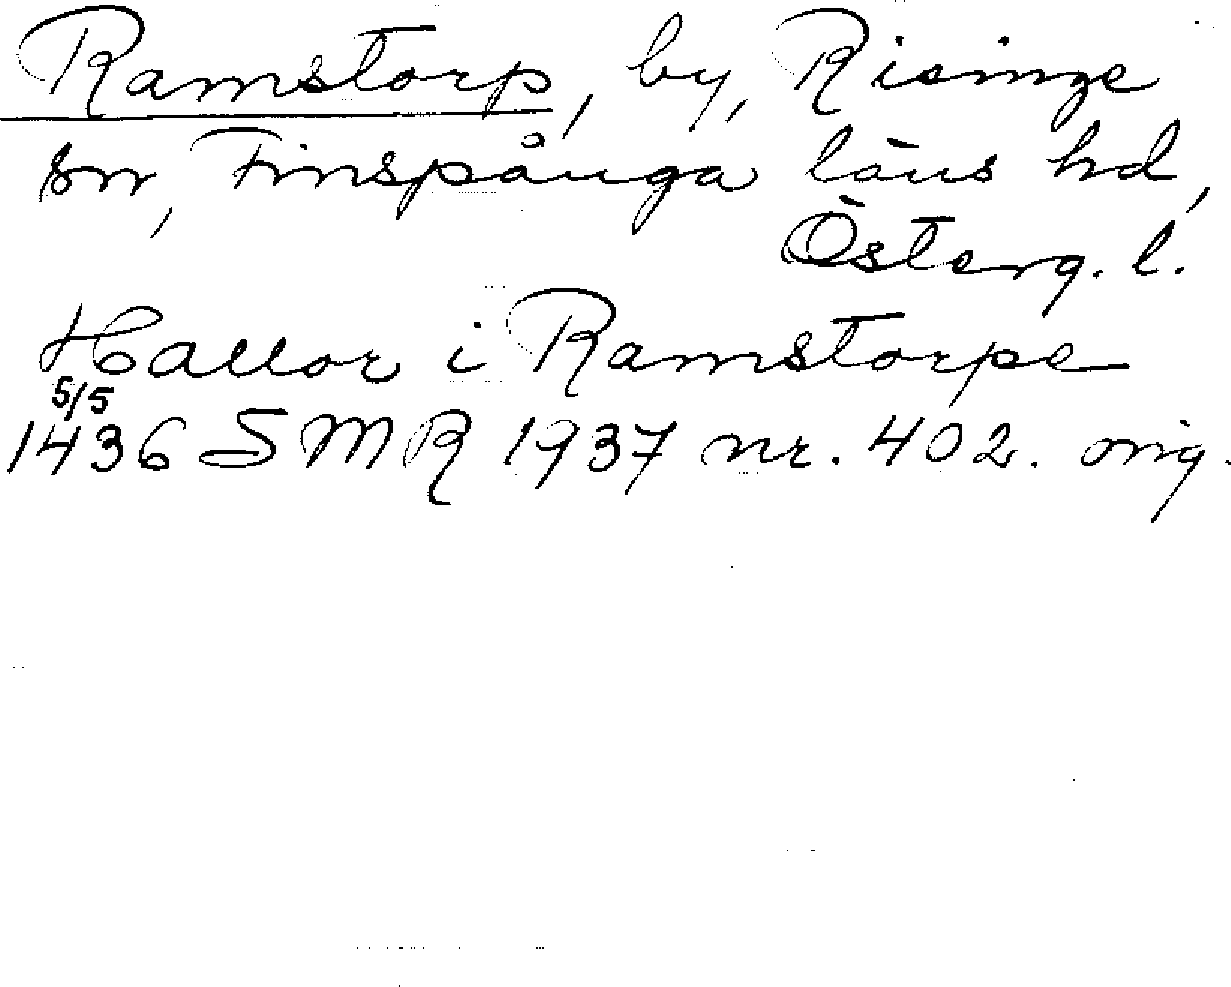 Ramstorp, by, Risinge
sn, Finspånga läns hd,
Österg. l.
Hallor i Ramstorpe
5/5
1436 SMR 1937 nr. 402. orig.